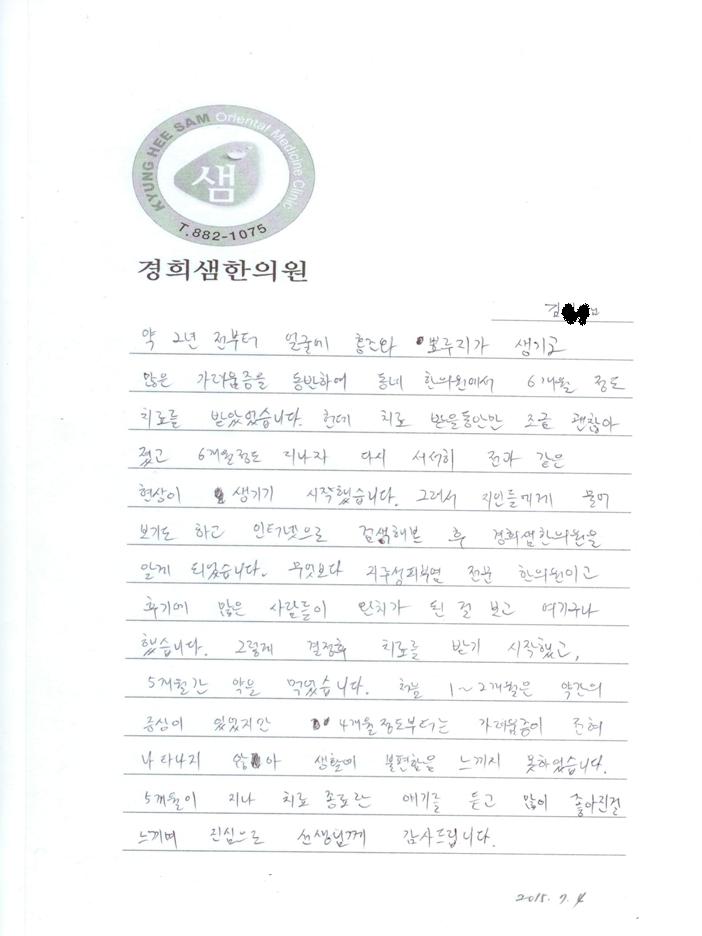 KYUNG HEE SAM Oriental Medicine Clinic
샘
T.882-1075
경희샘한의원
김 님
약 2년 전부터 얼굴에 홍조와 뽀루지가 생기고
많은 가려움증을 동반하여 동네 한의원에서 6개월 정도
치료를 받았었습니다. 헌데 치료 받을동안만 조금 괜찮아
졌고 6개월정도 지나자 다시 서서히 전과 같은
현상이 생기기 시작했습니다. 그래서 지인들에게 물어
보기도 하고 인터넷으로 검색해본 후 경희샘한의원을
알게 되었습니다. 무엇보다 지루성피부염 전문 한의원이고
후기에 많은 사람들이 완치가 된 걸 보고 여기구나
했습니다. 그렇게 결정후 치료를 받기 시작했고,
5개월간 약을 먹었습니다. 처음 1~2개월은 약간의
증상이 있었지만 4개월정도부터는 가려움증이 전혀
나타나지 않아 생활에 불편함을 느끼지 못하였습니다.
5개월이 지나 치료 종료란 얘기를 듣고 많이 좋아진걸
느끼며 진심으로 선생님께 감사드립니다.
2015. 7. 4